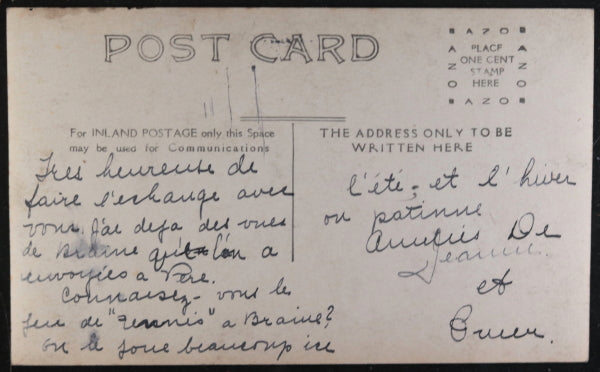 POST CARD
AZO
A PLACE A
ONE CENT
Z STAMP Z
O HERE O
AZO
For INLAND POSTAGE only this Space
may be used for Communications
THE ADDRESS ONLY TO BE
WRITTEN HERE
Tres heureuse de
faire l'echange avec
vous. J'ai deja des vues
de Braine qu'l'on a
envoyies a Pere.
Connaisez-vous le
jeu de "Tennis" a Braine?
on le joue beaucoup ice
l'été, et l'hiver
on patinne
Amitiés De
Jeanne
et